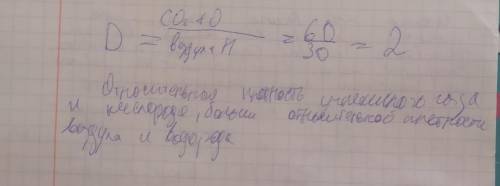 D = CO₂ + O / воздух + H = 60/30 = 2
Относительная плотность углекислого газа
и кислорода, больше относительной плотности
воздуха и водорода